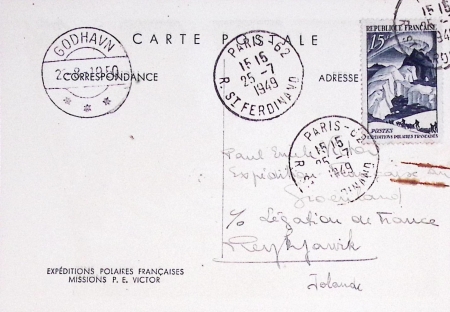 CARTE POSTALE
CORRESPONDANCE
ADRESSE
GODHAVN
1950
PARIS-62
15 15
25-7
1949
R. ST FERDINAND
15 15
1949
RÉPUBLIQUE FRANÇAISE
15F
POSTES
EXPÉDITIONS POLAIRES FRANÇAISES
PARIS-62
15 15
25-7
1949
Paul Emile Victor
Expédition Française au
Groenland
c/o Légation de France
Reykjavik
Islande
EXPÉDITIONS POLAIRES FRANÇAISES
MISSIONS P. E. VICTOR